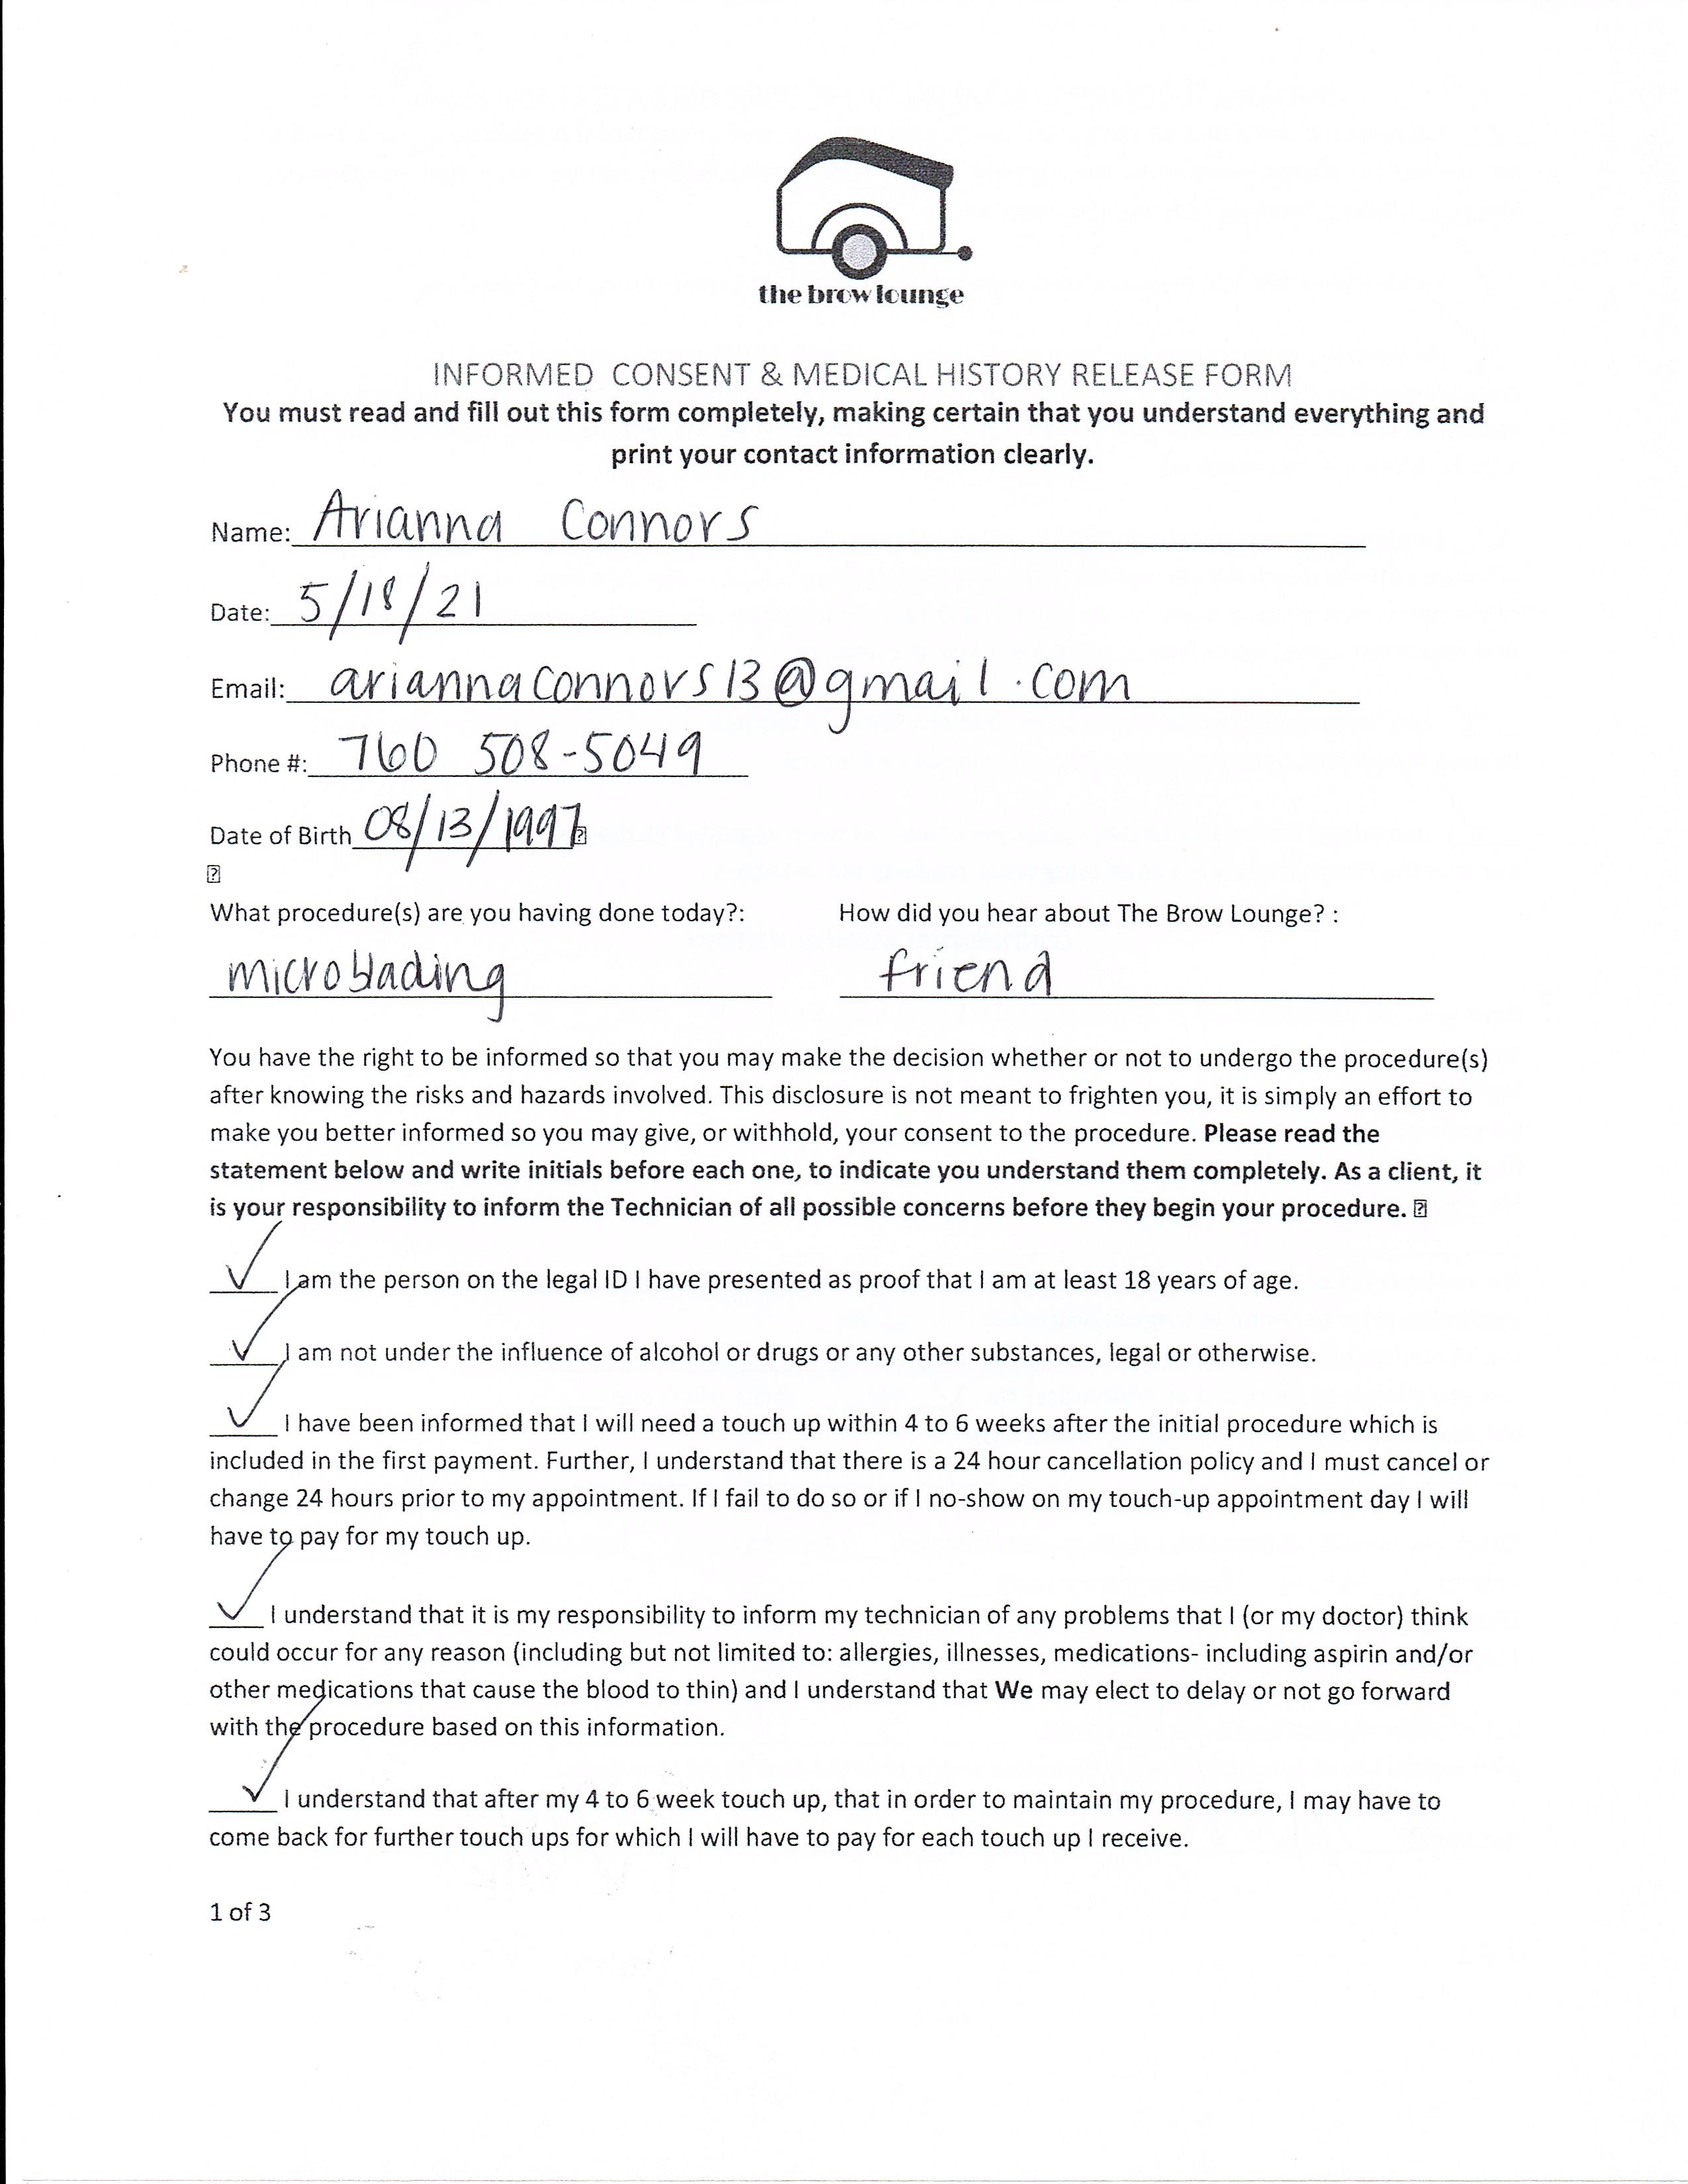 the brow lounge
INFORMED CONSENT & MEDICAL HISTORY RELEASE FORM
You must read and fill out this form completely, making certain that you understand everything and
print your contact information clearly.
Name: Arianna Connors
Date: 5/18/21
Email: ariannaconnors13@gmail.com
Phone #: 760 508-5049
Date of Birth 08/13/1997
What procedure(s) are you having done today?: How did you hear about The Brow Lounge? :
microblading friend
You have the right to be informed so that you may make the decision whether or not to undergo the procedure(s)
after knowing the risks and hazards involved. This disclosure is not meant to frighten you, it is simply an effort to
make you better informed so you may give, or withhold, your consent to the procedure. Please read the
statement below and write initials before each one, to indicate you understand them completely. As a client, it
is your responsibility to inform the Technician of all possible concerns before they begin your procedure.
✓ I am the person on the legal ID I have presented as proof that I am at least 18 years of age.
✓ I am not under the influence of alcohol or drugs or any other substances, legal or otherwise.
✓ I have been informed that I will need a touch up within 4 to 6 weeks after the initial procedure which is
included in the first payment. Further, I understand that there is a 24 hour cancellation policy and I must cancel or
change 24 hours prior to my appointment. If I fail to do so or if I no-show on my touch-up appointment day I will
have to pay for my touch up.
✓ I understand that it is my responsibility to inform my technician of any problems that I (or my doctor) think
could occur for any reason (including but not limited to: allergies, illnesses, medications- including aspirin and/or
other medications that cause the blood to thin) and I understand that We may elect to delay or not go forward
with the procedure based on this information.
✓ I understand that after my 4 to 6 week touch up, that in order to maintain my procedure, I may have to
come back for further touch ups for which I will have to pay for each touch up I receive.
1 of 3